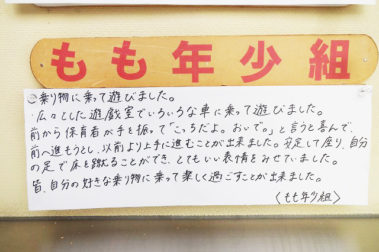 もも年少組
◯乗り物に乗って遊びました。
広々とした遊戯室でいろいろな車に乗って遊びました。
前から保育者が手を振って「こっちだよ。おいで。」と言うと喜んで、
前へ進もうとし、以前より上手に進むことが出来ました。安定して座り、自分
の足で床を蹴ることができ、とてもいい表情をみせていました。
皆、自分の好きな乗り物に乗って楽しく過ごすことが出来ました。
〈もも年少組〉